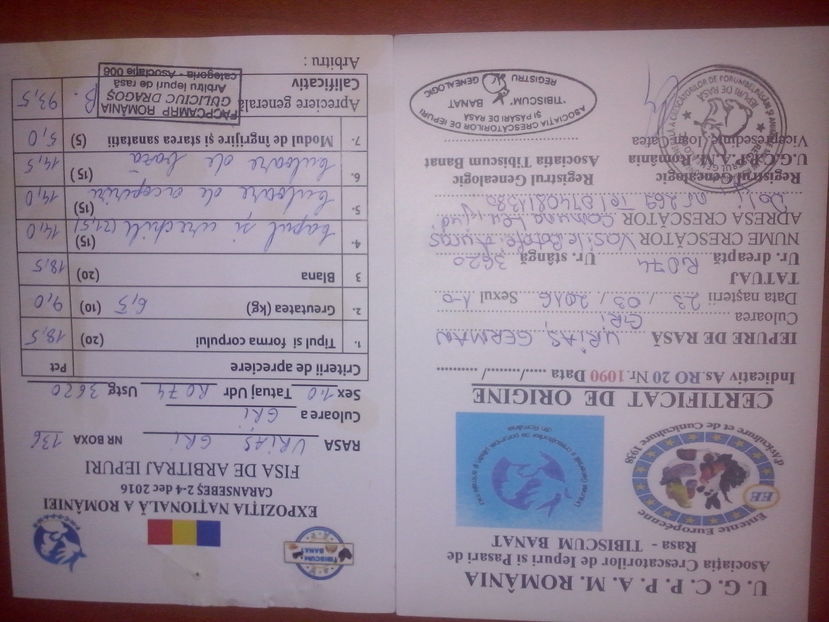 U. G. C. P. P. A. M. ROMÂNIA
Asociaţia Crescatorilor de Iepuri si Pasari de
Rasa - TIBISCUM BANAT
Entente Européenne
d'Aviculture et de Cuniculture 1938
EE
CERTIFICAT DE ORIGINE
Indicativ As.RO 20 Nr.1090 Data ...../...../..........
IEPURE DE RASĂ URIAŞ GERMAN
Culoarea GRI
Data naşterii 23 / 03 / 2016 Sexul 1-0
TATUAJ
Ur. dreaptă R074 Ur. stângă 3620
NUME CRESCĂTOR Vasile
ADRESA CRESCĂTOR Comuna
nr 269 Tel
Registrul Genealogic
U.G.C.P.P.A.M. România
Vicepreşedinte, Ioan Catea
Registrul Genealogic
Asociatia Tibiscum Banat
ASOCIAŢIA CRESCĂTORILOR DE IEPURI
ŞI PASARI DE RASA
"TIBISCUM" BANAT
REGISTRU GENEALOGIC
TIBISCUM BANAT
EXPOZIŢIA NAŢIONALĂ A ROMÂNIEI
CARANSEBEŞ 2-4 dec 2016
FISA DE ARBITRAJ IEPURI
RASA URIAŞ GRI NR BOXA 136
Culoarea GRI
Sex 1.0 Tatuaj Udr R074 Ustg 3620
Criterii de apreciere Pct
1. Tipul si forma corpului (20) 18,5
2. Greutatea (kg) (10) 6,5 9,0
3 Blana (20) 18,5
4. capul şi urechile (21,5) (15) 14,0
5. culoare de acoperire (15) 14,0
6. culoare de bază (15) 14,5
7. Modul de îngrijire şi starea sanatatii (5) 5,0
Apreciere generală
Calificativ B. 93,5
Arbitru :
FACPCAMRP ROMÂNIA
GULICIUC DRAGOŞ
Arbitru Iepuri de rasă
categoria - Asociaţie 006